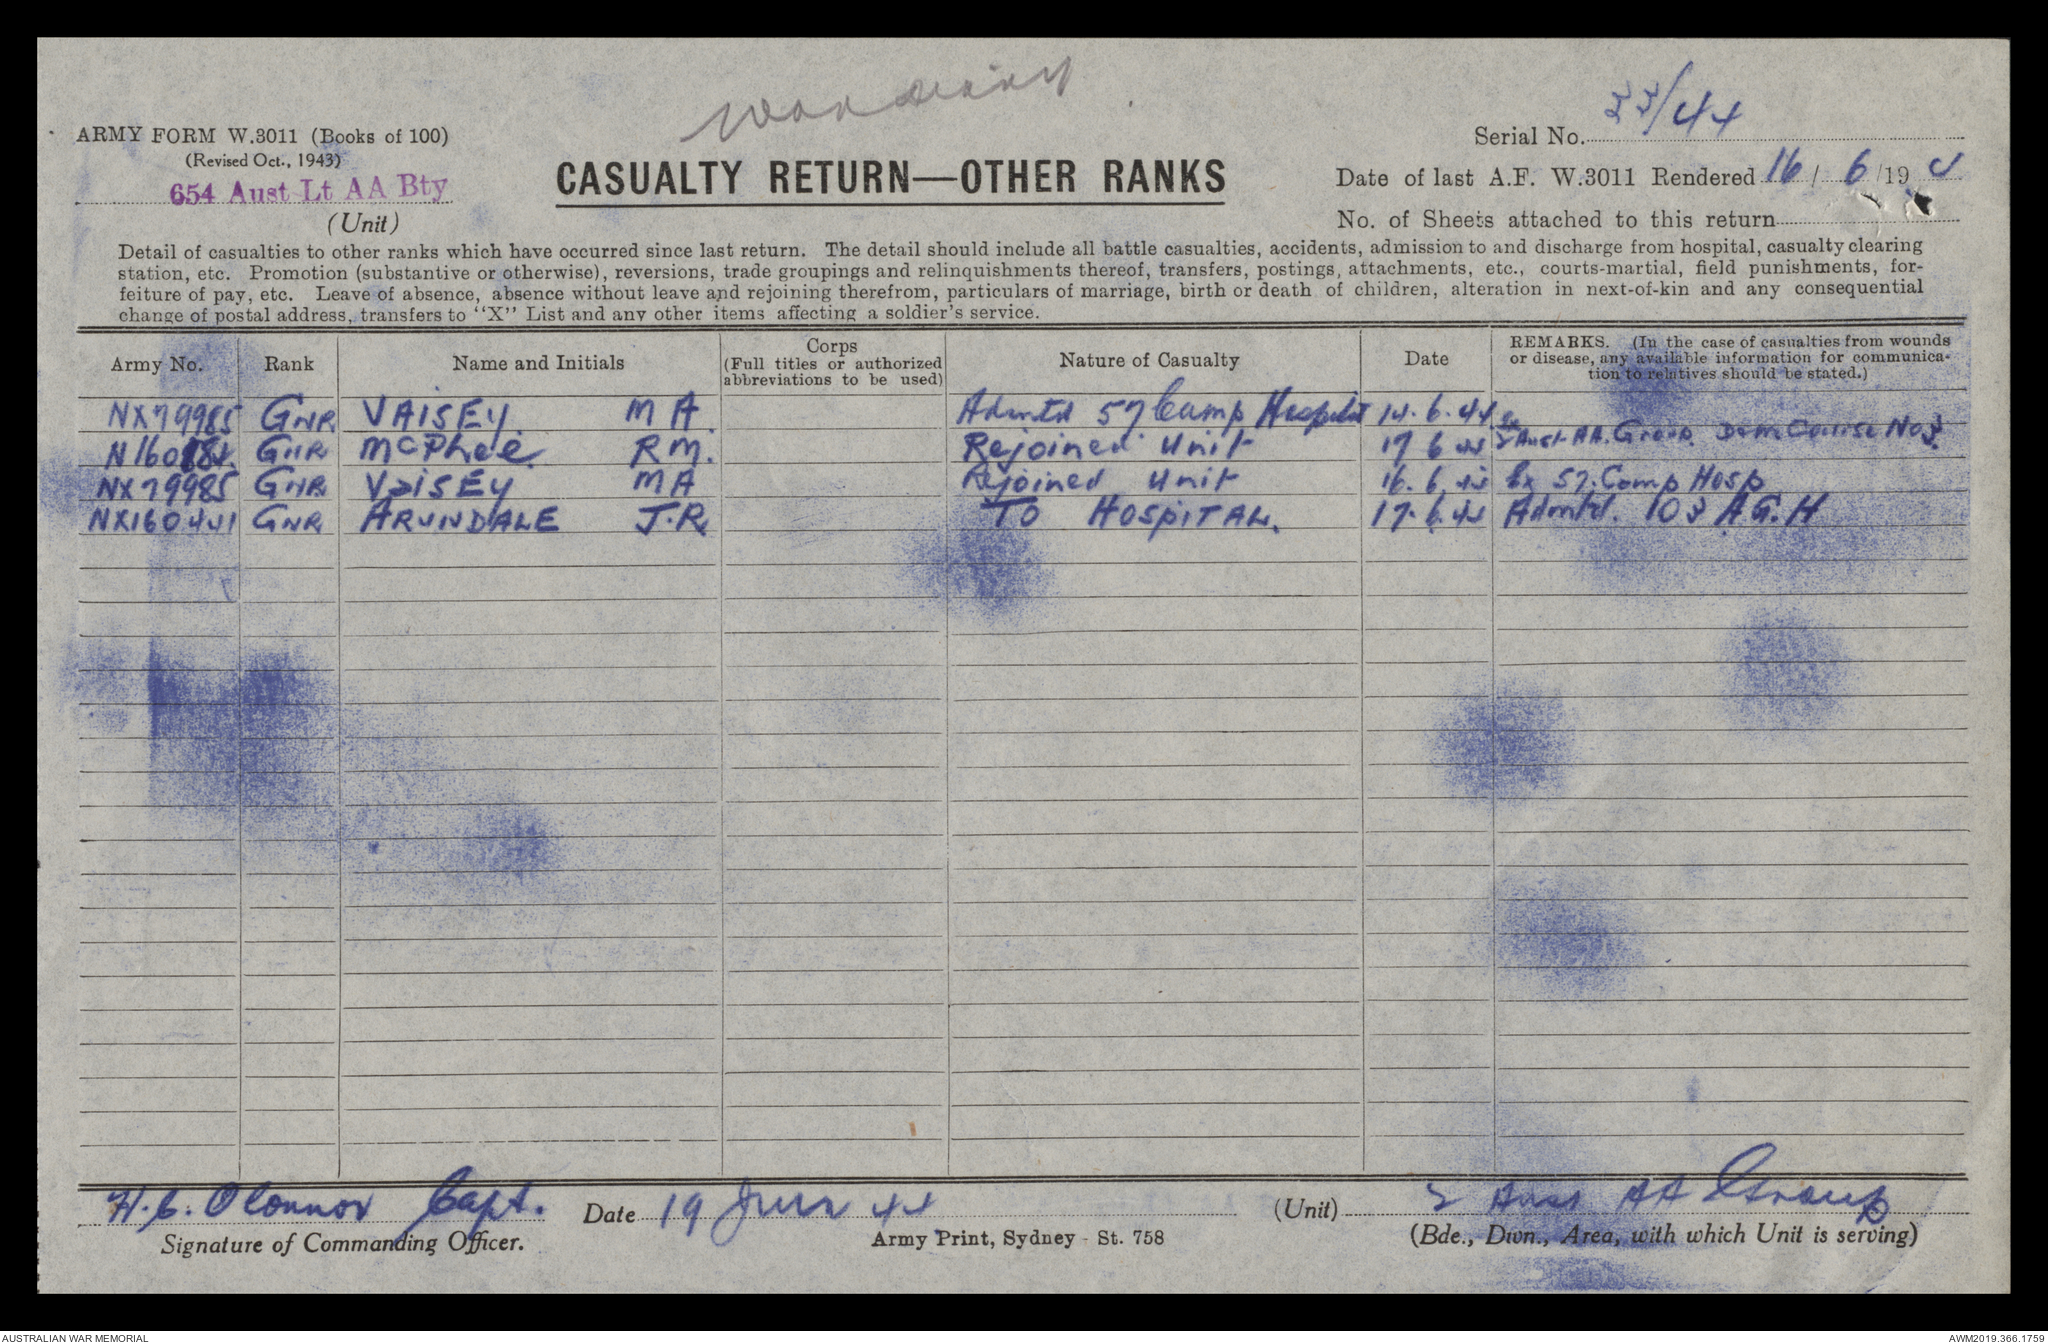 War Diary
ARMY FORM W.3011 (Books of 100)
(Revised Oct., 1943)
654 Aust Lt AA Bty
(Unit)
CASUALTY RETURN—OTHER RANKS
Serial No. 33/44
Date of last A.F. W.3011 Rendered 16/ 6/19 4
No. of Sheets attached to this return
Detail of casualties to other ranks which have occurred since last return. The detail should include all battle casualties, accidents, admission to and discharge from hospital, casualty clearing
station, etc. Promotion (substantive or otherwise), reversions, trade groupings and relinquishments thereof, transfers, postings, attachments, etc., courts-martial, field punishments, for-
feiture of pay, etc. Leave of absence, absence without leave and rejoining therefrom, particulars of marriage, birth or death of children, alteration in next-of-kin and any consequential
change of postal address, transfers to "X" List and any other items affecting a soldier's service.
Army No. Rank Name and Initials Corps (Full titles or authorized abbreviations to be used) Nature of Casualty Date REMARKS. (In the case of casualties from wounds or disease, any available information for communica-tion to relatives should be stated.)
NX79985 GNR VAISEY M A. Admtd 57 Camp Hospital 14.6.44
GNR McPhee R M. Rejoined Unit 17 6 44 2 Aust AA. Group Dem Course No 3
NX79985 GNR VAISEY M A Rejoined Unit 16.6.44 Ex 57. Camp Hosp
NX160441 GNR ARUNDALE J.R. To HOSPITAL. 17.6.44 Admtd. 103 A.G.H
H.C. O'Connor Capt. Date 19 June 44 (Unit) 2 Aust AA Group
Signature of Commanding Officer. Army Print, Sydney - St. 758 (Bde., Divn., Area, with which Unit is serving)
AUSTRALIAN WAR MEMORIAL AWM2019.366.1759